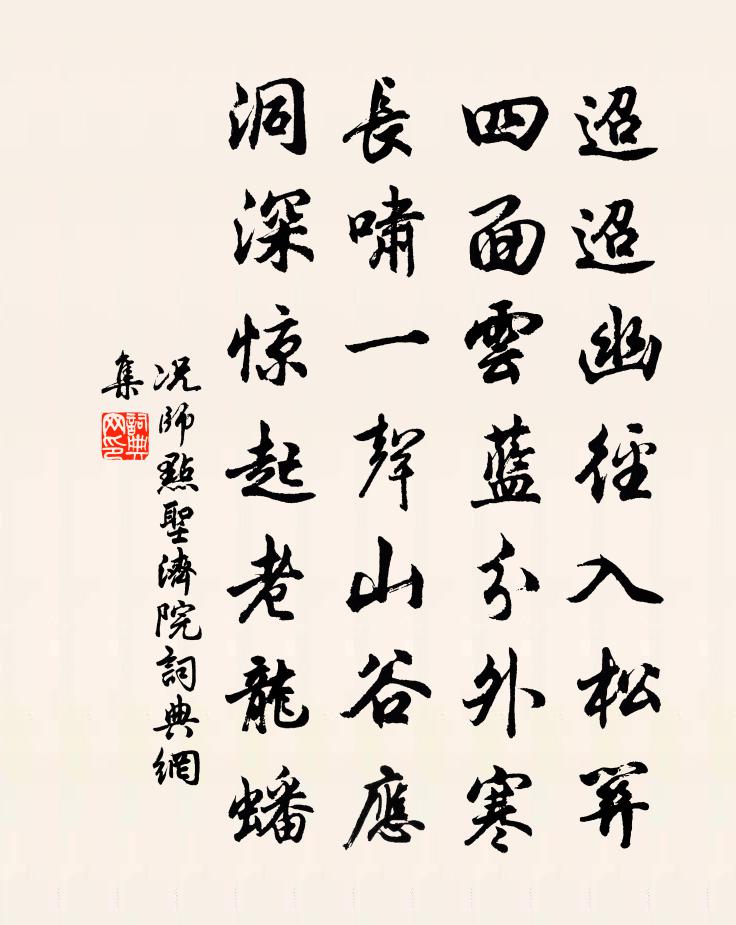 迢迢幽徑入松關
四面雲藍分外寒
長嘯一聲山谷應
洞深惊起老龍蟠
况師點聖濟院詞典網
集
詞典网印